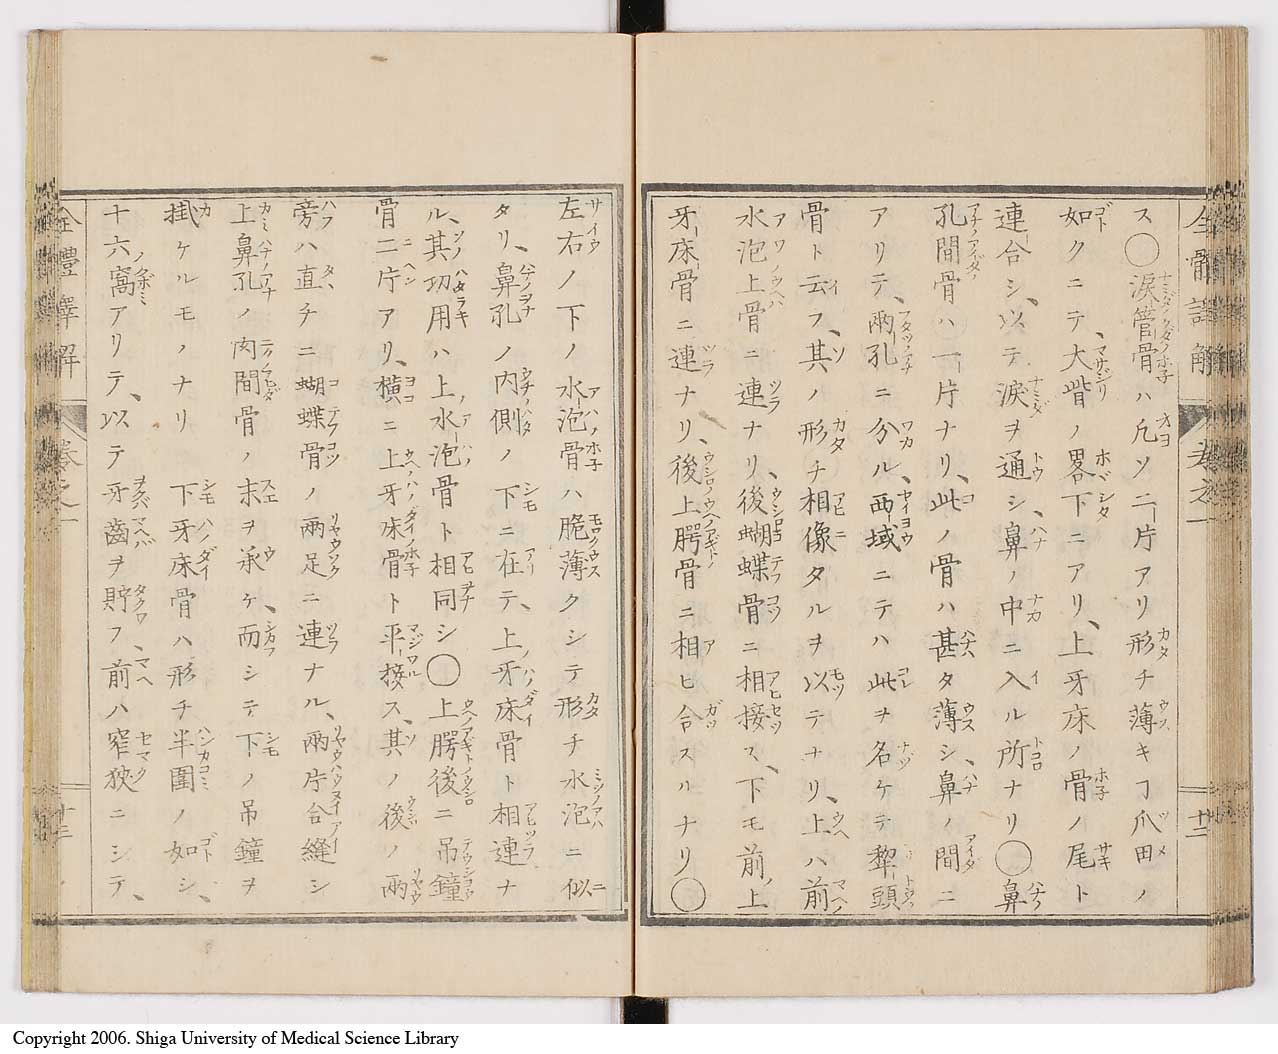 全體譯解 卷之一 十二
ス○涙管骨ハ凡ソ二片アリ形チ薄キヿ爪田ノ
如クニテ、大眥ノ畧下ニアリ、上牙床ノ骨ノ尾ト
連合シ、以テ涙ヲ通シ、鼻ノ中ニ入ル所ナリ○鼻
孔間骨ハ一片ナリ、此ノ骨ハ甚タ薄シ、鼻ノ間ニ
アリテ、兩孔ニ分ル、西域ニテハ此ヲ名ケテ犂頭
骨ト云フ、其ノ形チ相像タルヲ以テナリ、上ハ前
水泡上骨ニ連ナリ、後蝴蝶骨ニ相接ス、下モ前ノ上
牙床骨ニ連ナリ、後上腭骨ニ相ヒ合スルナリ○
左右ノ下ノ水泡骨ハ脆薄クシテ形チ水泡ニ似
タリ、鼻孔ノ内側ノ下ニ在テ、上牙床骨ト相連ナ
ル、其功用ハ上水泡骨ト相同シ○上腭後ニ吊鐘
骨二片アリ、橫ニ上牙床骨ト平接ス、其ノ後ノ兩
旁ハ直チニ蝴蝶骨ノ兩足ニ連ナル、兩片合縫シ
上鼻孔ノ内間骨ノ末ヲ承ケ、而シテ下ノ吊鐘ヲ
掛ケルモノナリ 下牙床骨ハ形チ半圍ノ如シ、
十六窩アリテ、以テ牙齒ヲ貯フ前ハ窄狹ニシテ、
全體譯解 卷之一 十三
Copyright 2006. Shiga University of Medical Science Library